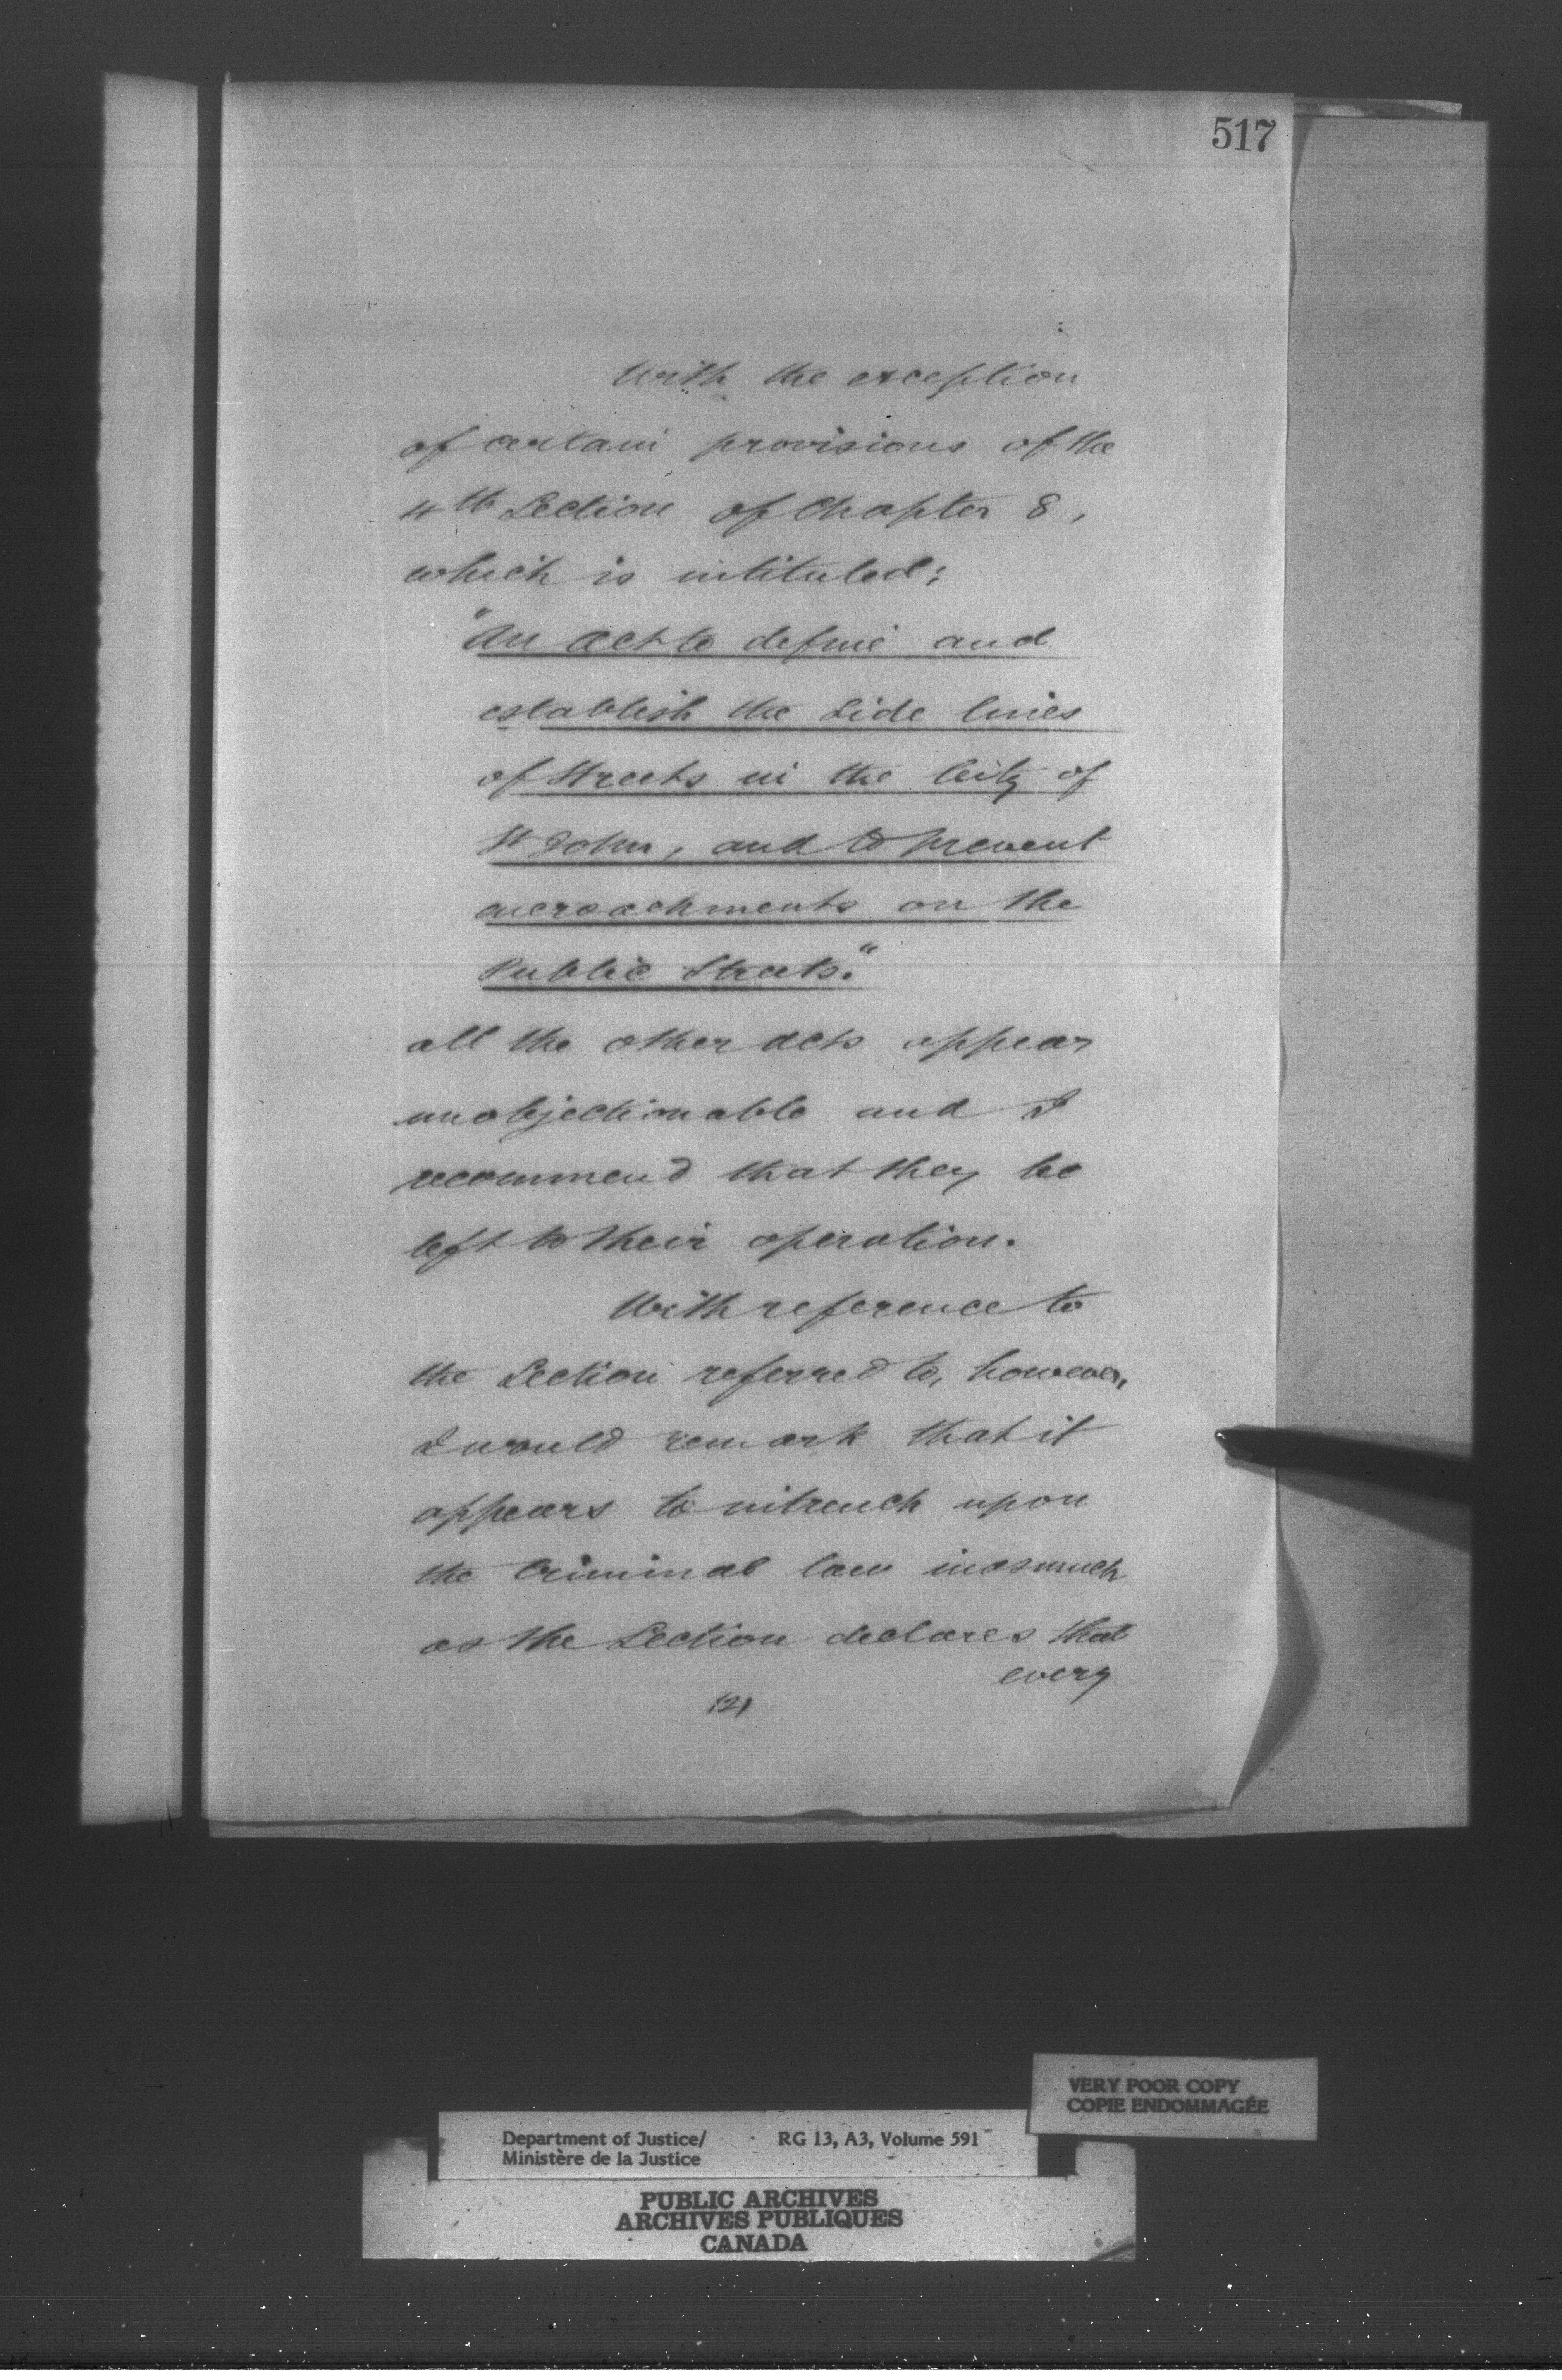 517
With the exception
of certain provisions of the
4th Section of Chapter 8,
which is intituled;
"An Act to define and
establish the Side lines
of Streets in the City of
St John, and to prevent
encroachments on the
Public Streets."
all the other acts appear
unobjectionable and I
recommend that they be
left to their operation.
With reference to
the Section referred to, however,
I would remark that it
appears to intrench upon
the Criminal law inasmuch
as the Section declares that
every
(2)
VERY POOR COPY
COPIE ENDOMMAGÉE
Department of Justice/ RG 13, A3, Volume 591
Ministère de la Justice
PUBLIC ARCHIVES
ARCHIVES PUBLIQUES
CANADA